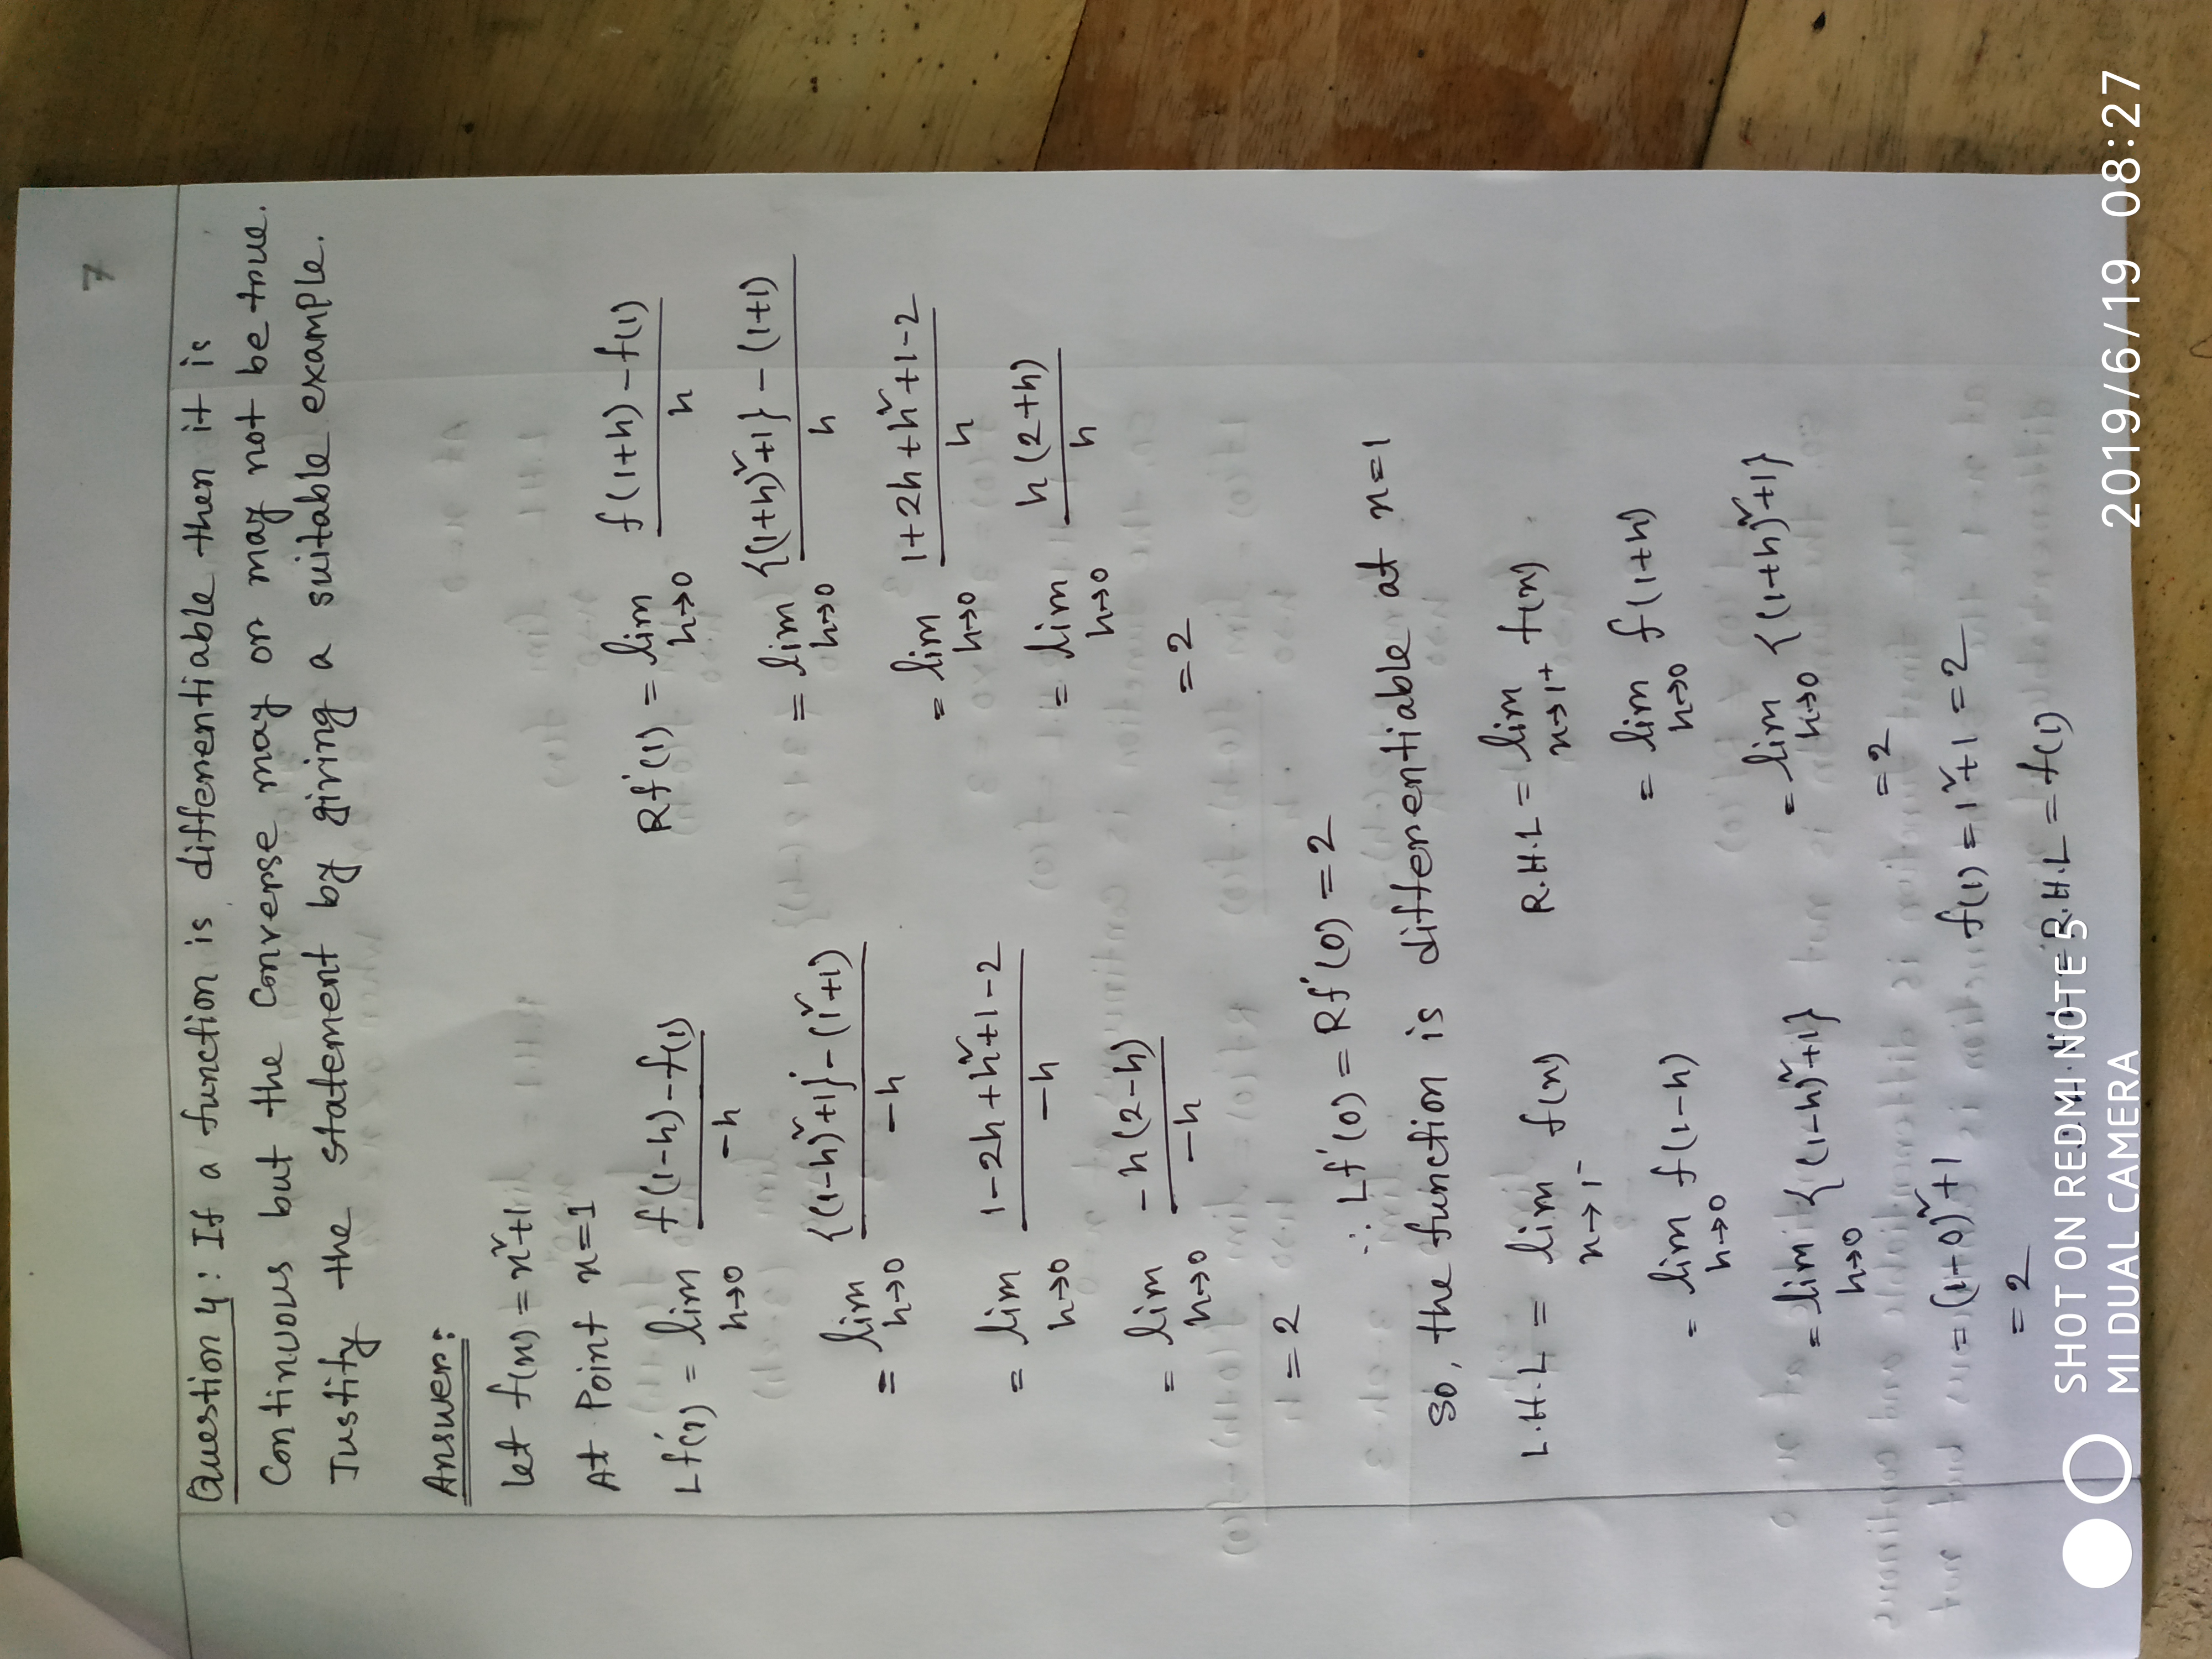 7
Question 4: If a function is differentiable then it is
continuous but the converse may or may not be true.
Justify the statement by giving a suitable example.
Answer:
Let f(x) = x²+1
At Point x=1
Lf'(1) = lim h→0 f(1-h)-f(1) / -h
= lim h→0 {(1-h)²+1}-(1²+1) / -h
= lim h→0 1-2h+h²+1-2 / -h
= lim h→0 -h(2-h) / -h
= 2
Rf'(1) = lim h→0 f(1+h)-f(1) / h
= lim h→0 {(1+h)²+1} - (1+1) / h
= lim h→0 1+2h+h²+1-2 / h
= lim h→0 h(2+h) / h
= 2
∴ Lf'(0) = Rf'(0) = 2
So, the function is differentiable at x=1
L.H.L = lim x→1⁻ f(x)
= lim h→0 f(1-h)
= lim h→0 {(1-h)²+1}
= (1-0)²+1
= 2
R.H.L = lim x→1+ f(x)
= lim h→0 f(1+h)
= lim h→0 {(1+h)²+1}
= 2
f(1) = 1²+1 = 2
∴ L.H.L = R.H.L = f(1)
SHOT ON REDMI NOTE 5
MI DUAL CAMERA
2019/6/19 08:27